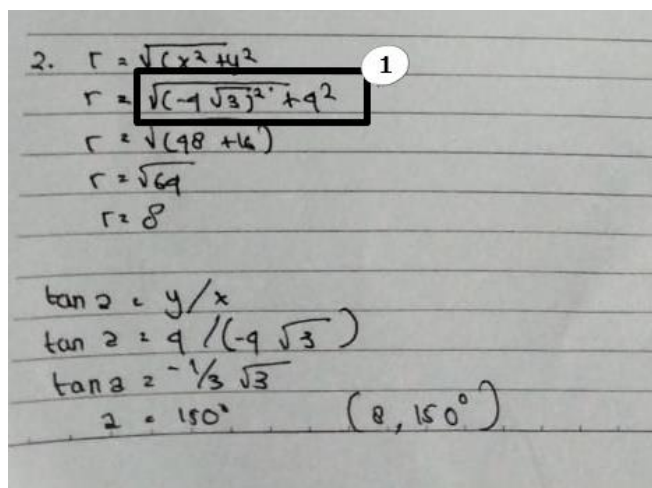 2. r = √(x² + y²
1
r = √(-4 √3)² + 4²
r = √(48 + 16)
r = √64
r = 8
tan a = y/x
tan a = 4 / (-4 √3)
tan a = -1/3 √3
a = 150° (8, 150°)